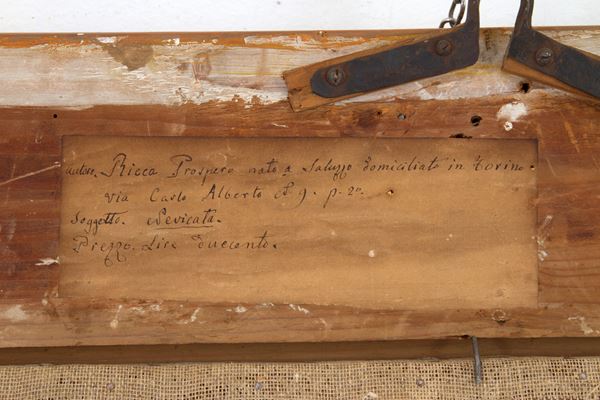 autore. Ricca Prospero nato a Saluzzo domiciliato in Torino.
via Carlo Alberto N 9. p. 2º.
Soggetto. Nevicata.
Prezzo. Lire duecento.